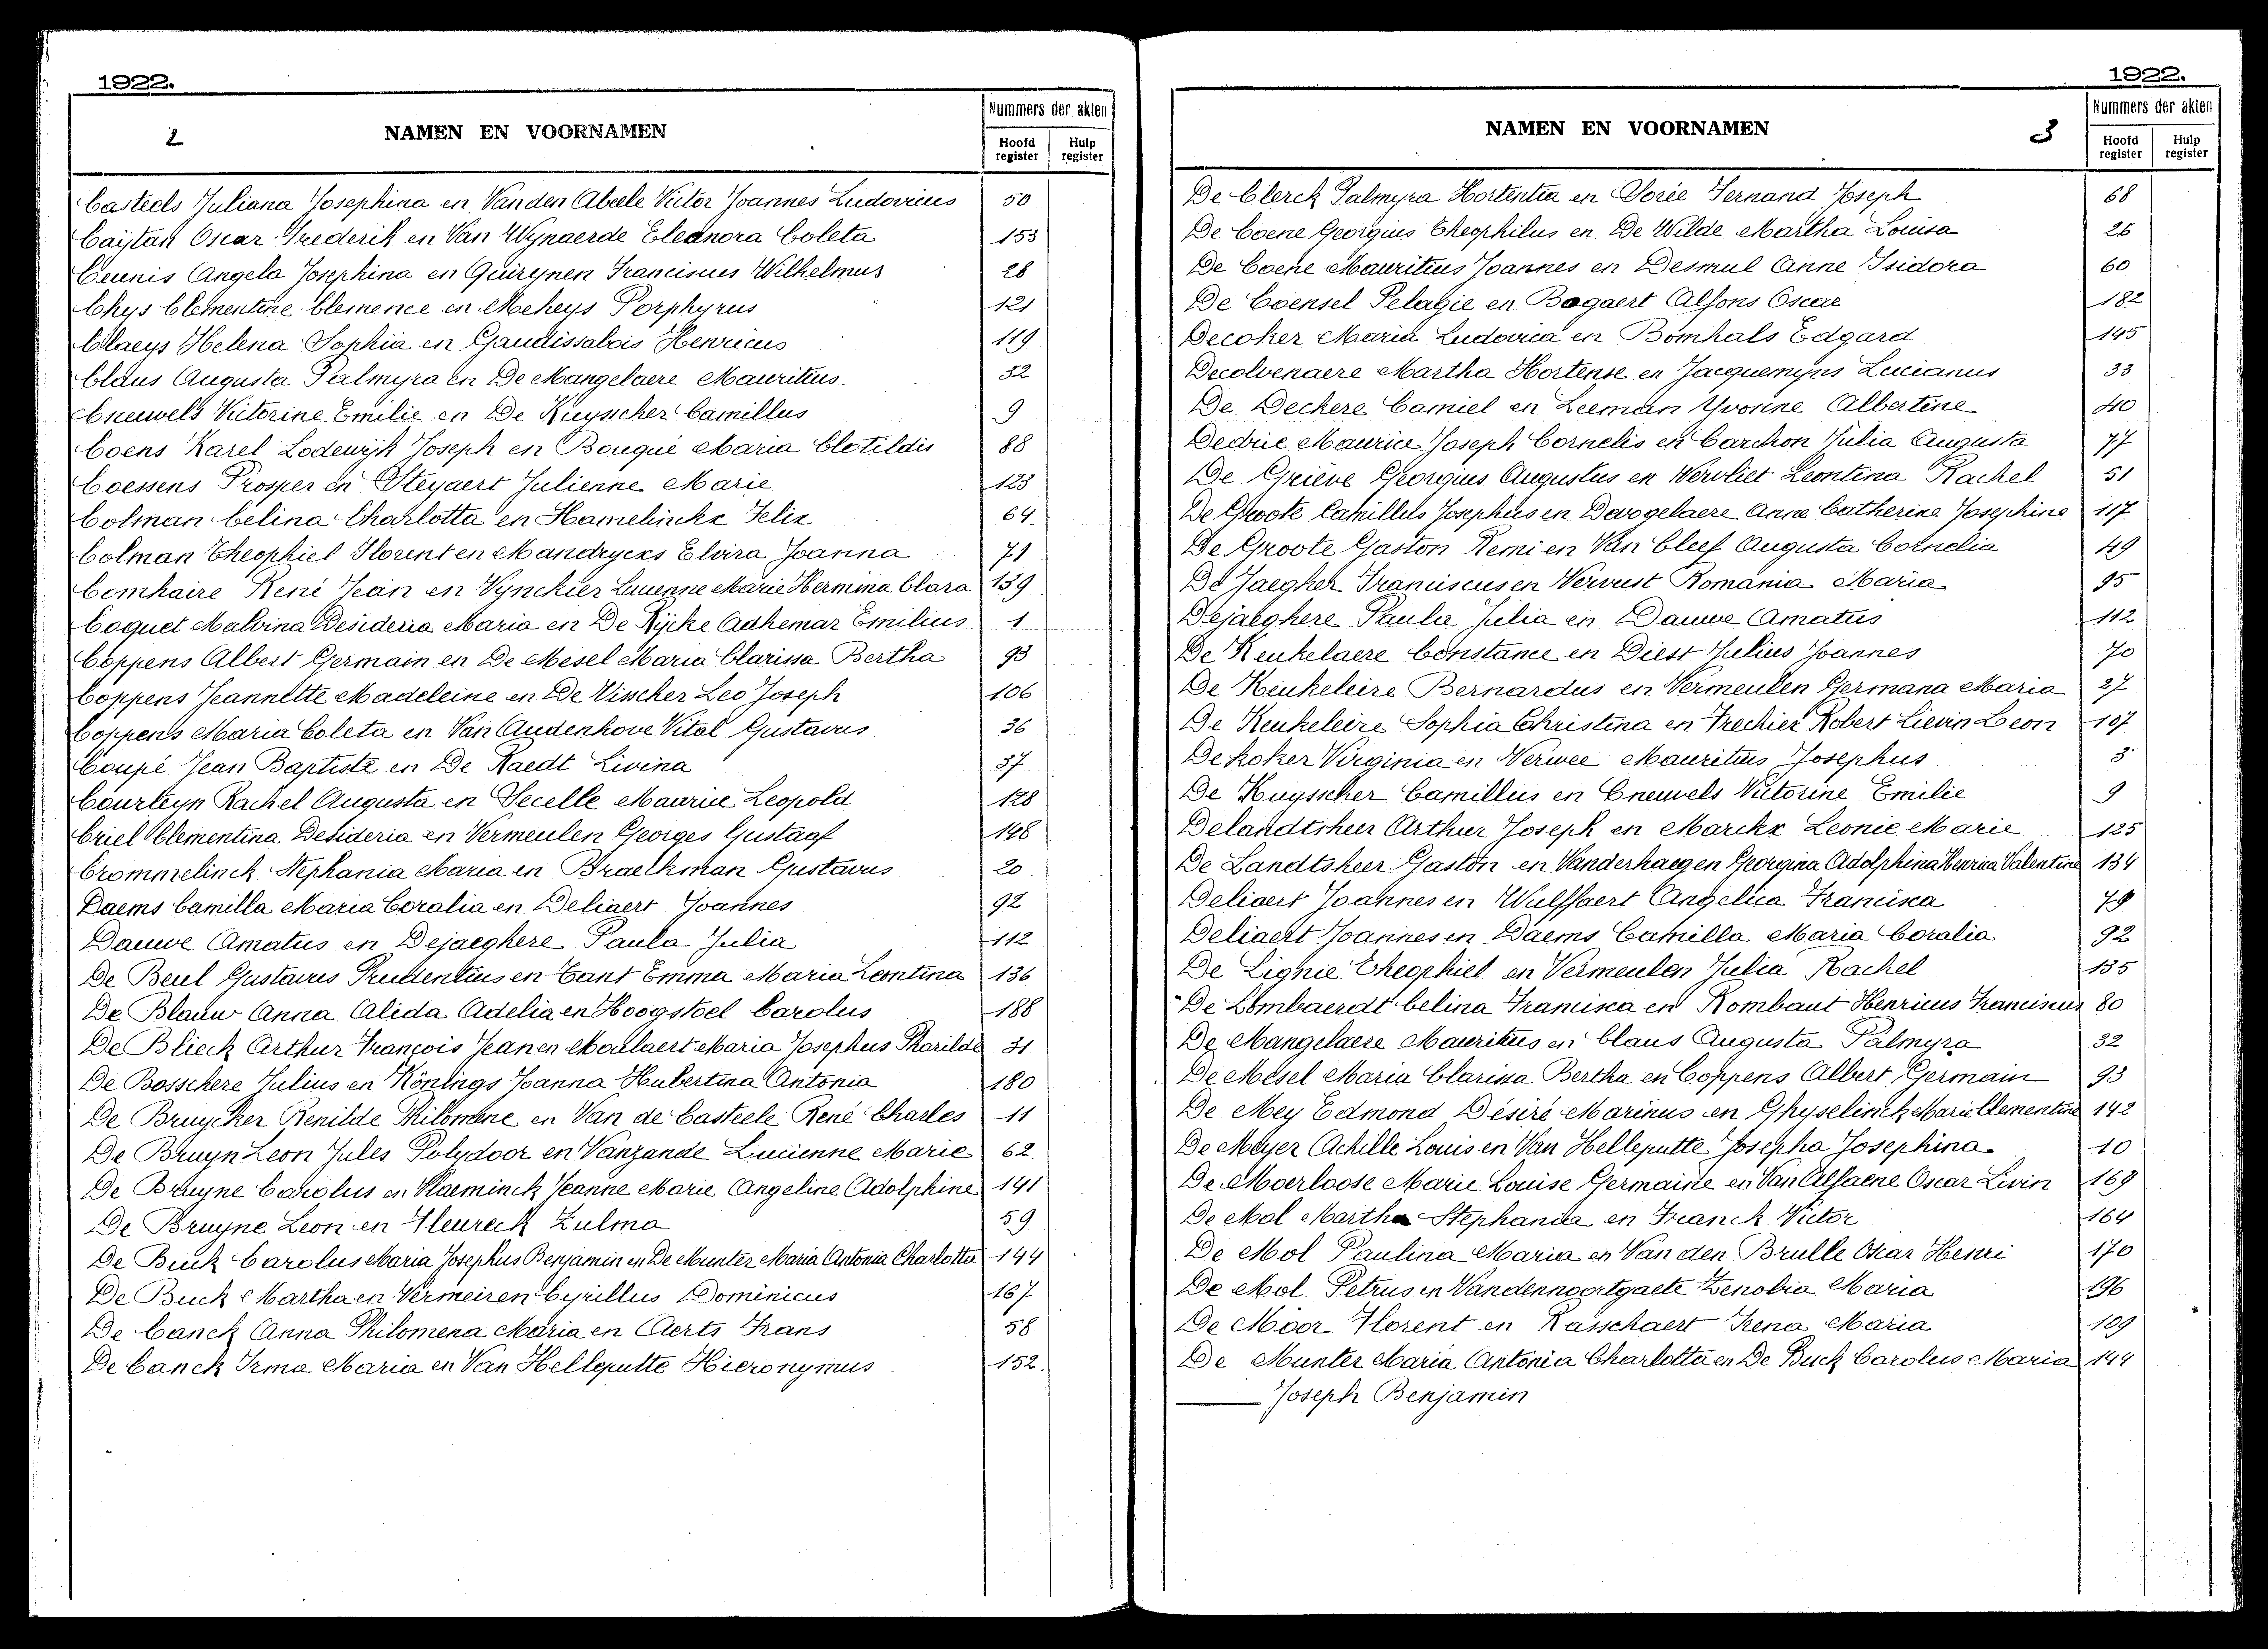 1922.
2 NAMEN EN VOORNAMEN
Nummers der akten
Hoofd register Hulp register
Casteels Juliana Josephina en Van den Abeele Victor Joannes Ludovicus 50
Caijtan Oscar Frederik en Van Wynaerde Eleonora Coleta 153
Ceunis Angela Josephina en Quireynen Franciscus Wilhelmus 28
Chys Clementine Clemence en Meheys Porphyrus 121
Claeys Helena Sophia en Gaudissabois Henricus 119
Claus Augusta Palmyra en De Mangelaere Mauritius 32
Cneuwels Victorine Emilie en De Kuysscher Camillus 9
Coens Karel Lodewijk Joseph en Bouqué Maria Clotildis 88
Coessens Prosper en Steyaert Julienne Marie 123
Colman Celina Charlotta en Hamelinckx Felix 64
Colman Theophiel Florent en Mandryckx Elvira Joanna 71
Comhaire René Jean en Vynckier Lucienne Marie Hermina Clara 139
Coquet Malvina Desideria Maria en De Rijcke Adhemar Emilius 1
Coppens Albert Germain en De Mesel Maria Clarissa Bertha 93
Coppens Jeannette Madeleine en De Visscher Leo Joseph 106
Coppens Maria Coleta en Van Audenhove Vital Gustavus 36
Coupé Jean Baptiste en De Raedt Livina 37
Courteyn Rachel Augusta en Secelle Maurice Leopold 128
Criel Clementina Desideria en Vermeulen Georges Gustaaf 148
Crommelinck Stephania Maria en Braeckman Gustavus 20
Daems Camilla Maria Coralia en Deliaert Joannes 92
Dauwe Amatus en Dejaeghere Paula Julia 112
De Beul Gustavus Prudentius en Cant Emma Maria Leontina 136
De Blauw Anna Alida Adelia en Hoogstoel Carolus 188
De Blieck Arthur François Jean en Moulaert Maria Josephus Pharilde 31
De Bosschere Julius en Könings Joanna Hubertina Antonia 180
De Bruycker Renilde Philomene en Van de Casteele René Charles 11
De Bruyn Leon Jules Polydoor en Vanzande Lucienne Marie 62
De Bruyne Carolus en Vlaeminck Jeanne Marie Angeline Adolphine 141
De Bruyne Leon en Fleureck Zulma 59
De Buck Carolus Maria Josephus Benjamin en De Munter Maria Antonia Charlotta 144
De Buck Martha en Vermeiren Cyrillus Dominicus 167
De Canck Anna Philomena Maria en Aerts Frans 58
De Canck Irma Maria en Van Helleputte Hieronymus 152.
1922.
NAMEN EN VOORNAMEN 3
Nummers der akten
Hoofd register Hulp register
De Clerck Palmyra Hortentia en Dorée Fernand Joseph 68
De Coene Georgius Theophilus en De Wilde Martha Louisa 26
De Coene Mauritius Joannes en Desmul Anne Isidora 60
De Coensel Pelagie en Bogaert Alfons Oscar 182
Decoker Maria Ludovica en Bomhals Edgard 145
Decolvenaere Martha Hortense en Jacquemyns Lucianus 33
De Deckere Camiel en Leeman Yvonne Albertine 40
Dedrie Maurice Joseph Cornelis en Carchon Julia Augusta 77
De Griève Georgius Augustus en Vervliet Leontina Rachel 51
De Groote Camillus Josephus en Devogelaere Anna Catherine Josephine 117
De Groote Gaston Remi en Van Cleef Augusta Cornelia 49
De Jaegher Franciscus en Vervust Romania Maria 95
Dejaeghere Paula Julia en Dauwe Amatus 112
De Keukelaere Constance en Diest Julius Joannes 70
De Keukeleire Bernardus en Vermeulen Germana Maria 27
De Keukeleire Sophia Christina en Frechier Robert Lievin Leon 107
De Koker Virginia en Verwee Mauritius Josephus 3
De Kuysscher Camillus en Cneuwels Victorine Emilie 9
Delandtsheer Arthur Joseph en Marckx Leonie Marie 125
De Landtsheer Gaston en Vanderhaegen Georgina Adolphina Henrica Valentine 134
Deliaert Joannes en Wulffaert Angelica Francisca 79
Deliaert Joannes en Daems Camilla Maria Coralia 92
De Lignie Theophiel en Vermeulen Julia Rachel 135
De Lombaerdt Celina Francisca en Rombaut Henricus Franciscus 80
De Mangelaere Mauritius en Claus Augusta Palmyra 32
De Mesel Maria Clarissa Bertha en Coppens Albert Germain 93
De Mey Edmond Désiré Marinus en Ghyselinck Marie Clementine 142
De Meyer Achille Louis en Van Helleputte Josepha Josephina 10
De Moerloose Marie Louise Germaine en Van Alfaene Oscar Livin 169
De Mol Martha Stephania en Franck Victor 164
De Mol Paulina Maria en Van den Brulle Oscar Henri 170
De Mol Petrus en Vandennoortgaete Zenobia Maria 196
De Moor Florent en Rasschaert Irena Maria 109
De Munter Maria Antonia Charlotta en De Buck Carolus Maria 144
Joseph Benjamin